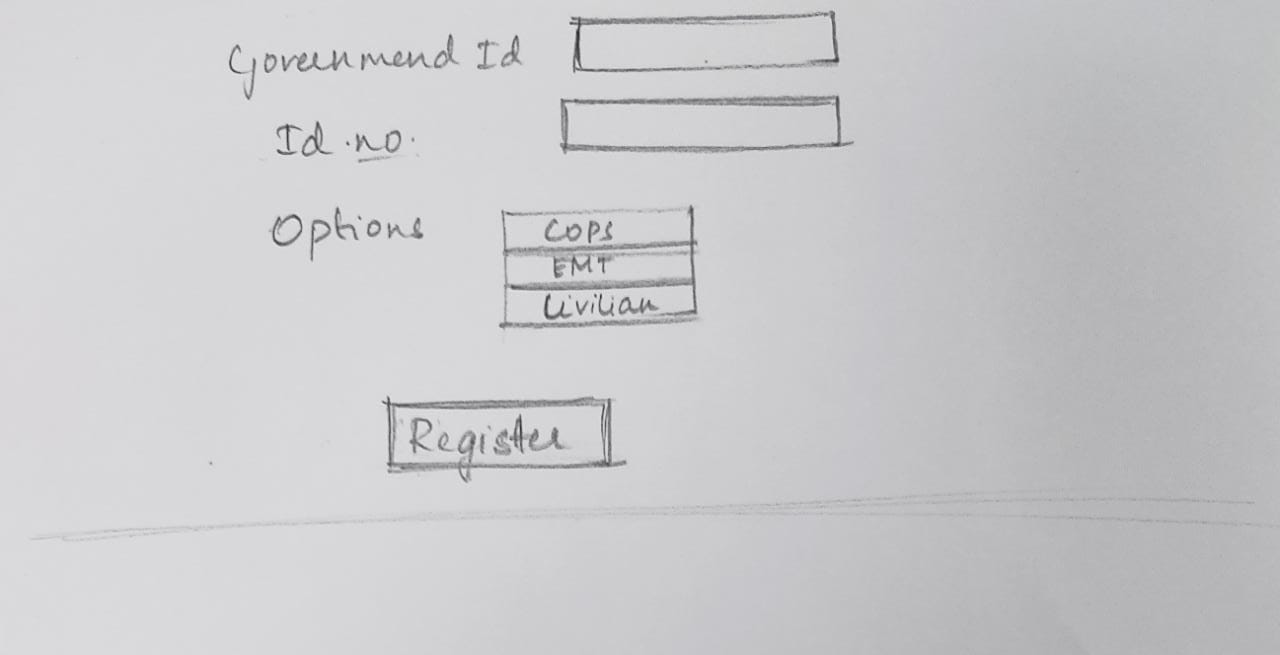 Governmend Id
Id.no.
Options
COPS
EMT
Civilian
Register